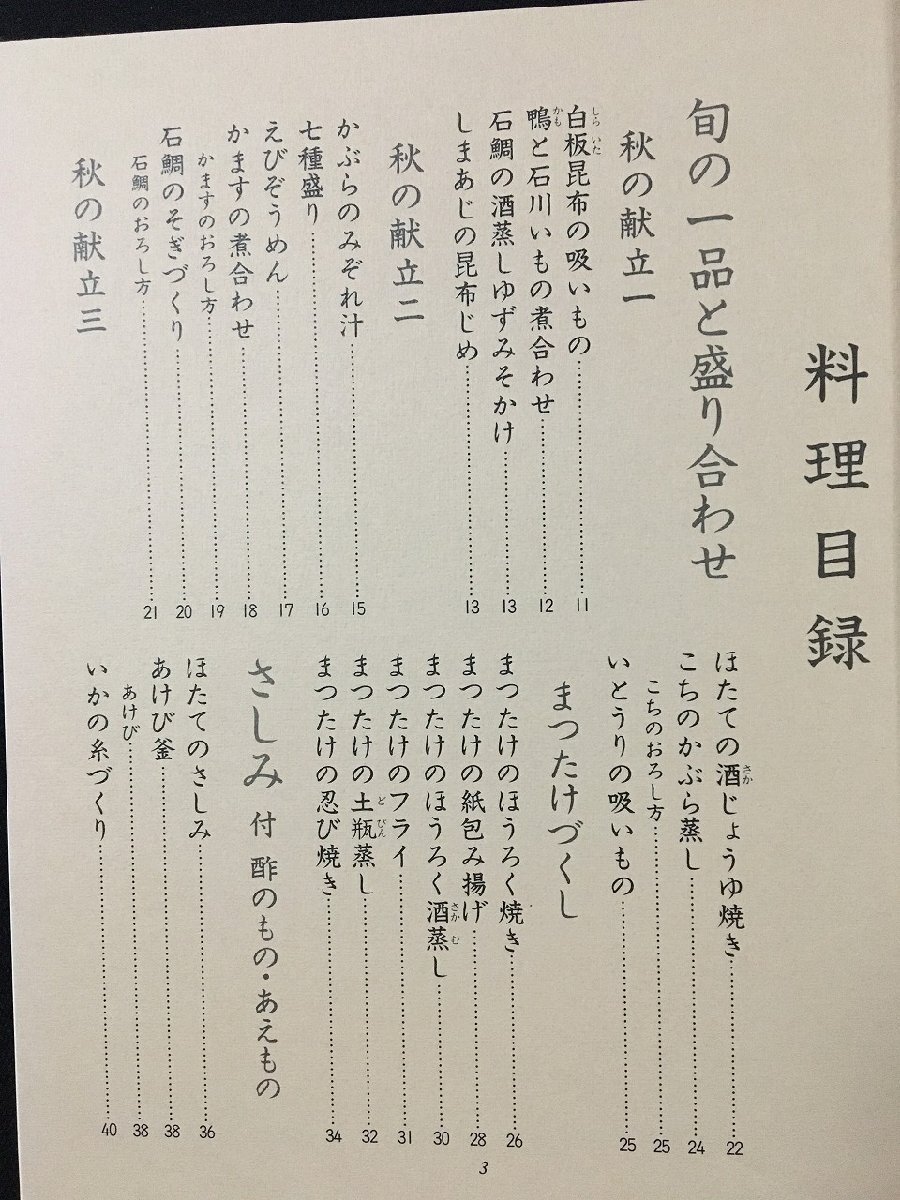 料理目録
旬の一品と盛り合わせ
秋の献立一
白板昆布の吸いもの 11
しら いた
鴨と石川いもの煮合わせ 12
かも
石鯛の酒蒸しゆずみそかけ 13
しまあじの昆布じめ 13
秋の献立二
かぶらのみぞれ汁 15
七種盛り 16
えびぞうめん 17
かますの煮合わせ 18
かますのおろし方 19
石鯛のそぎづくり 20
石鯛のおろし方 21
秋の献立三
ほたての酒じょうゆ焼き 22
さか
こちのかぶら蒸し 24
こちのおろし方 25
いとうりの吸いもの 25
まつたけづくし
まつたけのほうろく焼き 26
まつたけの紙包み揚げ 28
まつたけのほうろく酒蒸し 30
さか む
まつたけのフライ 31
まつたけの土瓶蒸し 32
ど びん
まつたけの忍び焼き 34
さしみ 付 酢のもの・あえもの
ほたてのさしみ 36
あけび釜 38
あけび 38
いかの糸づくり 40
3